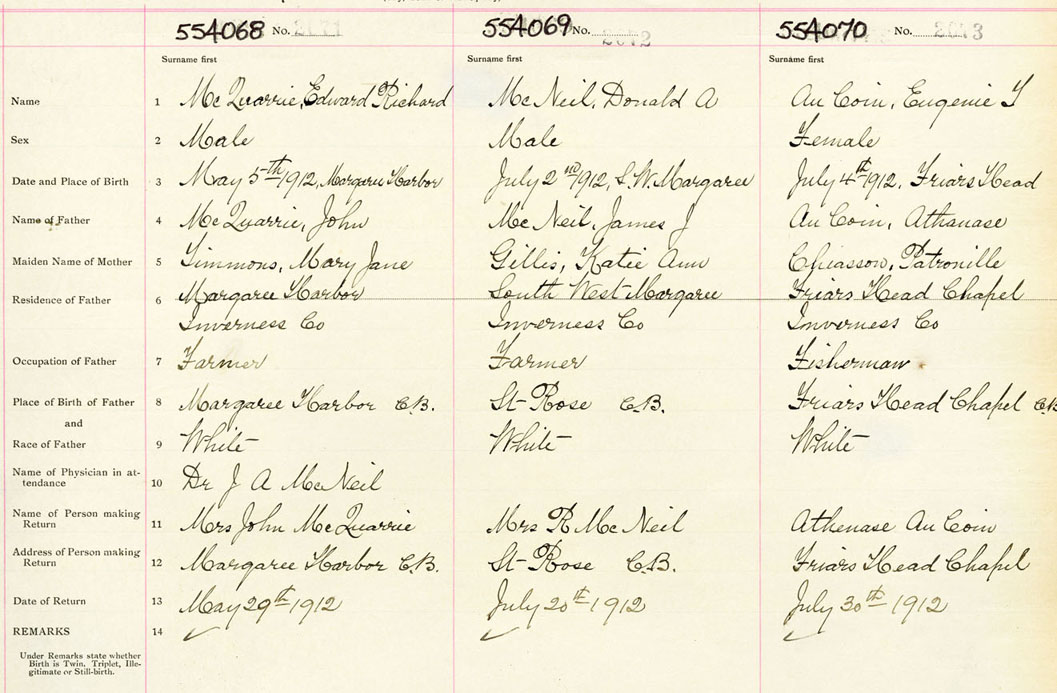 554068 No. 2071 554069 No. 2072 554070 No. 2073
Surname first Surname first Surname first
Name 1 McQuarrie, Edward Richard McNeil, Donald A Au Coin, Eugenie
Sex 2 Male Male Female
Date and Place of Birth 3 May 5th 1912, Margaree Harbor July 2nd 1912, S.W. Margaree July 4th 1912, Friars Head
Name of Father 4 McQuarrie, John McNeil, James J Au Coin, Athanase
Maiden Name of Mother 5 Timmons, Mary Jane Gillis, Katie Ann Chiasson, Patronille
Residence of Father 6 Margaree Harbor South West Margaree Friars Head Chapel
Inverness Co Inverness Co Inverness Co
Occupation of Father 7 Farmer Farmer Fisherman
Place of Birth of Father 8 Margaree Harbor C.B. St-Rose C.B. Friars Head Chapel C.B
and
Race of Father 9 White White White
Name of Physician in at-
tendance 10 Dr J A McNeil
Name of Person making
Return 11 Mrs John McQuarrie Mrs R McNeil Athenase Au Coin
Address of Person making
Return 12 Margaree Harbor C.B. St-Rose C.B. Friars Head Chapel
Date of Return 13 May 29th 1912 July 20th 1912 July 30th 1912
REMARKS 14
Under Remarks state whether
Birth is Twin, Triplet, Ille-
gitimate or Still-birth.